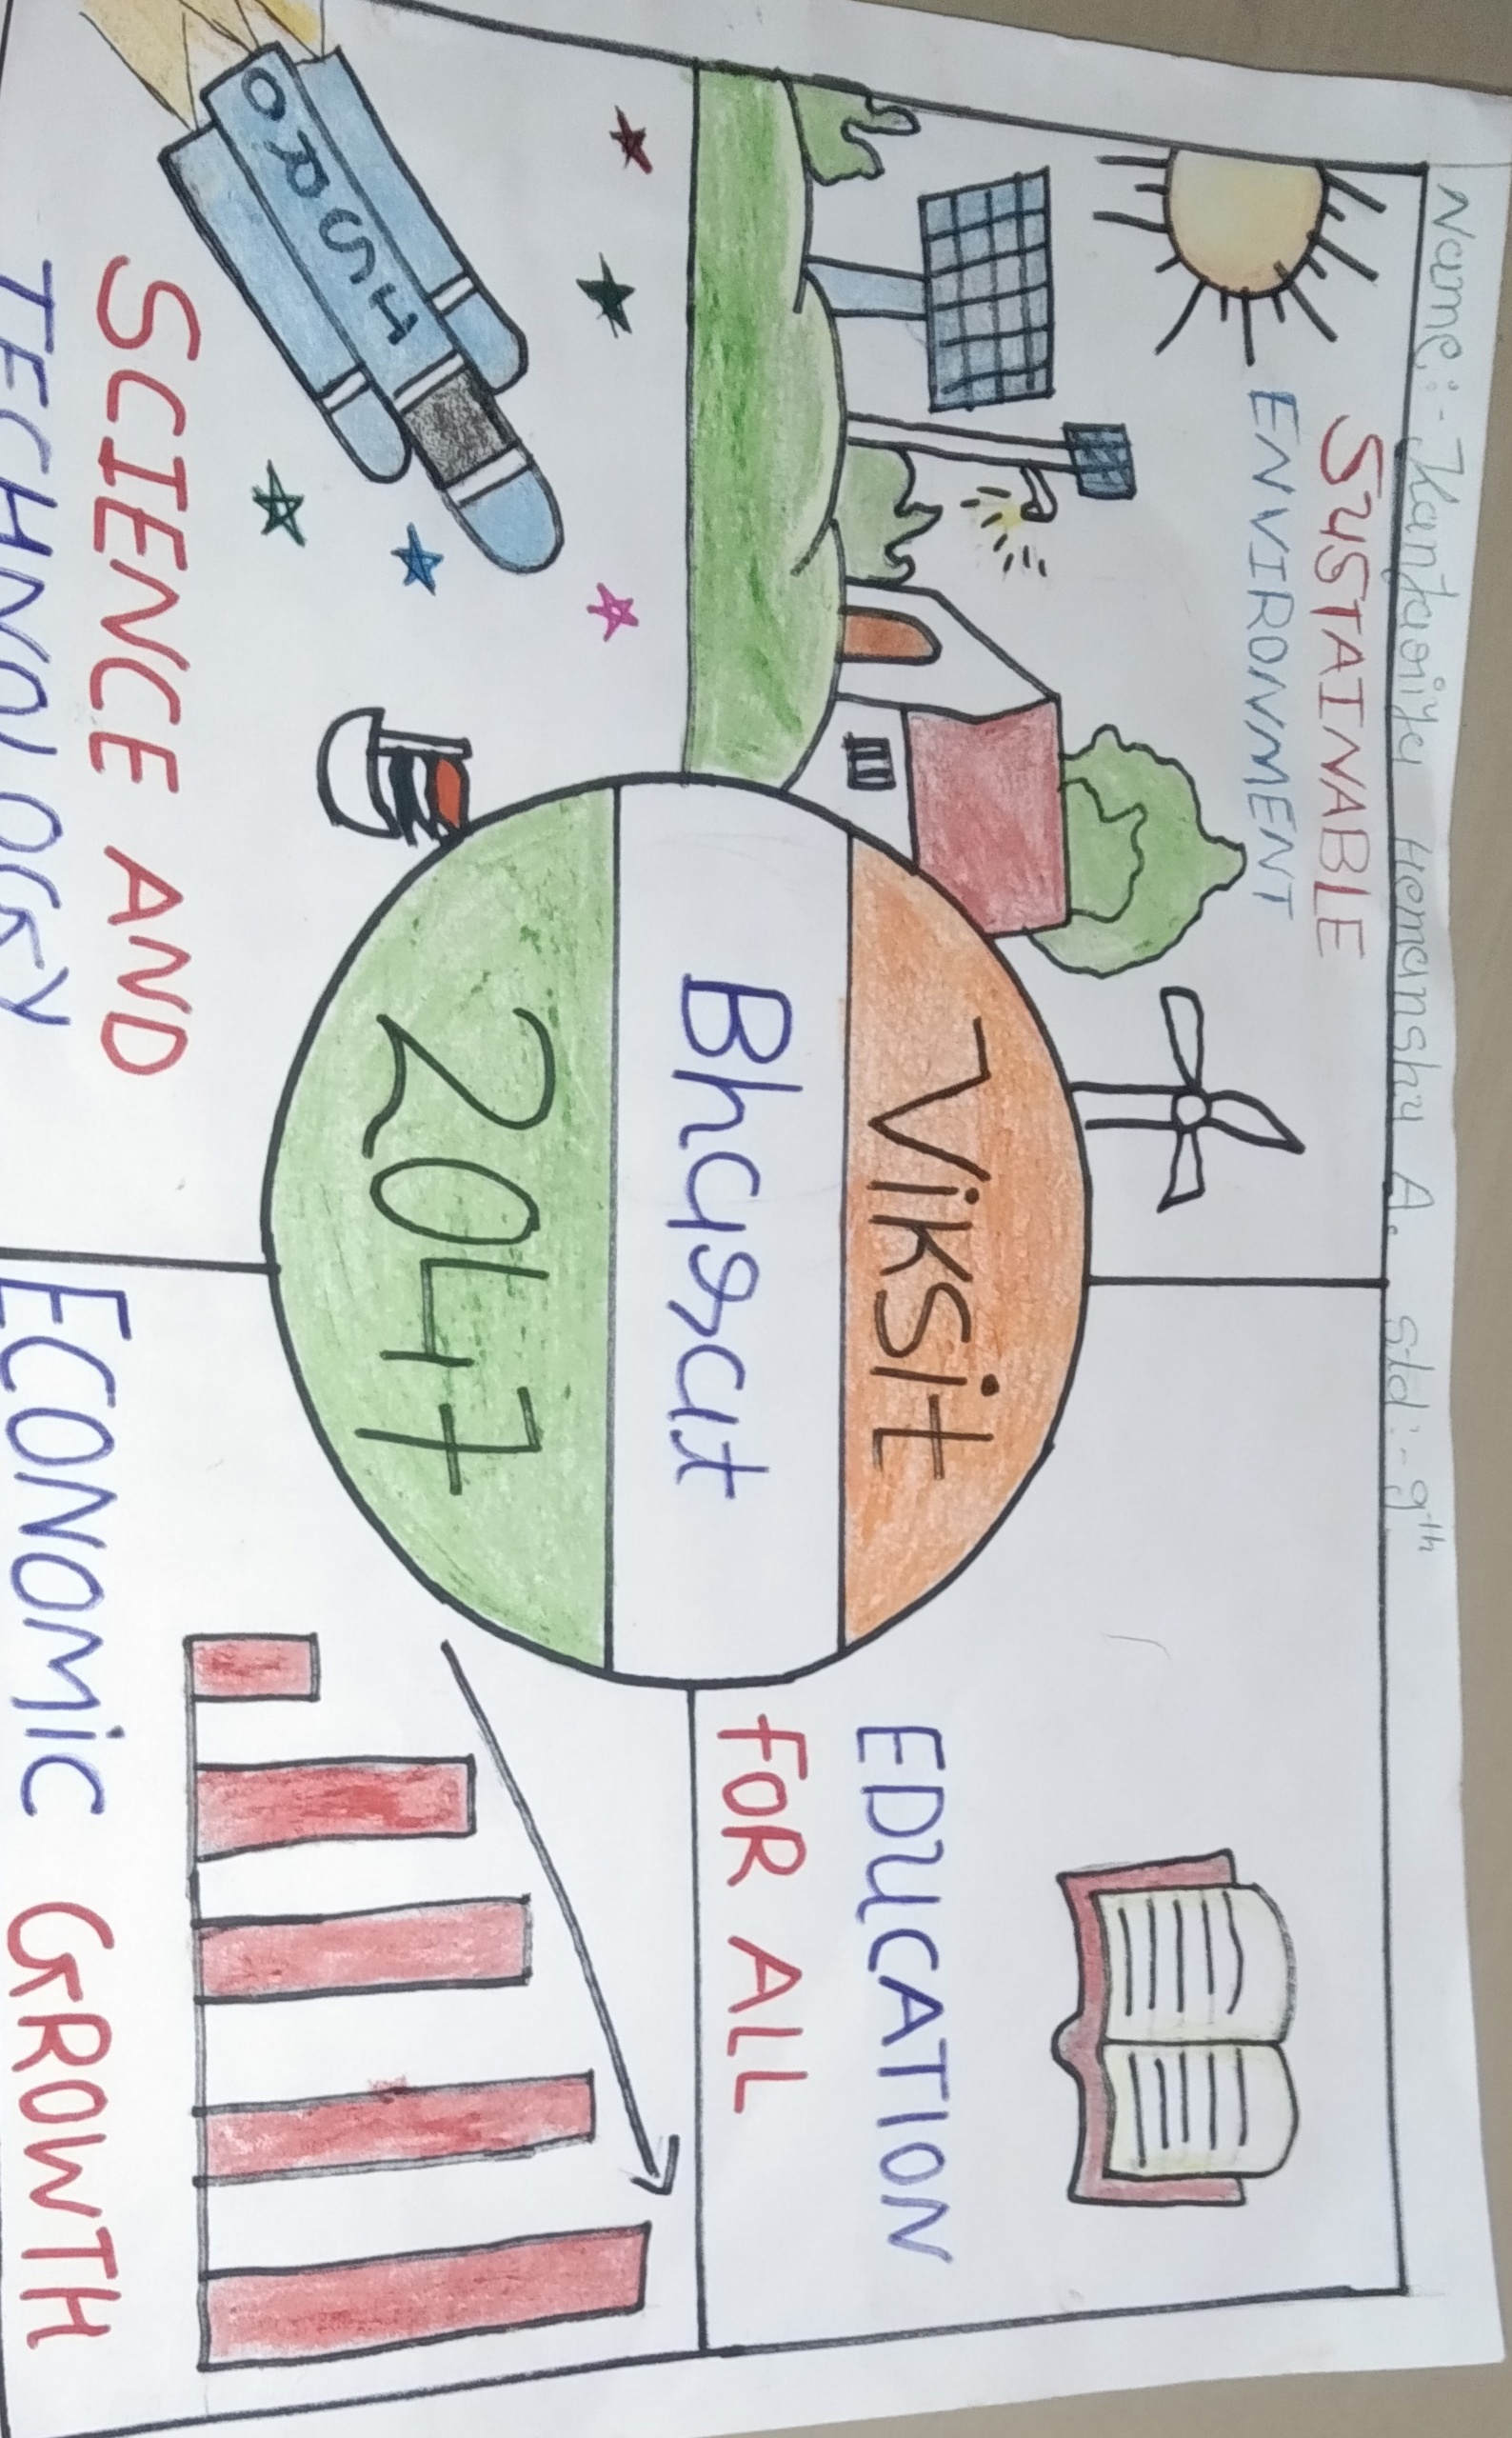 Name:- Kantariya Hemanshu A. std:- 9th
SUSTAINABLE
ENVIRONMENT
EDUCATION
FOR ALL
Viksit
Bharat
2047
ISRO
SCIENCE AND
TECHNOLOGY
ECONOMiC GROWTH